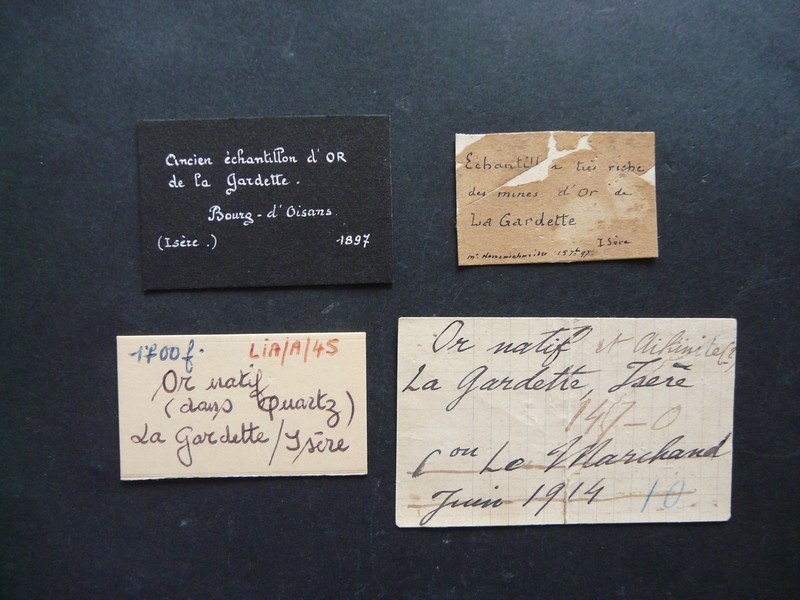 Ancien échantillon d'OR
de la Gardette.
Bourg-d'Oisans.
(Isère.) 1897
Echantill très riche
des mines d'Or de
La Gardette
Isère
1700f. LiA/A/45
Or natif
(dans Quartz)
La Gardette/Isère
Or natif et Aikinite(?)
La Gardette, Isère
147-0
Con Le Marchand
Juin 1914 10